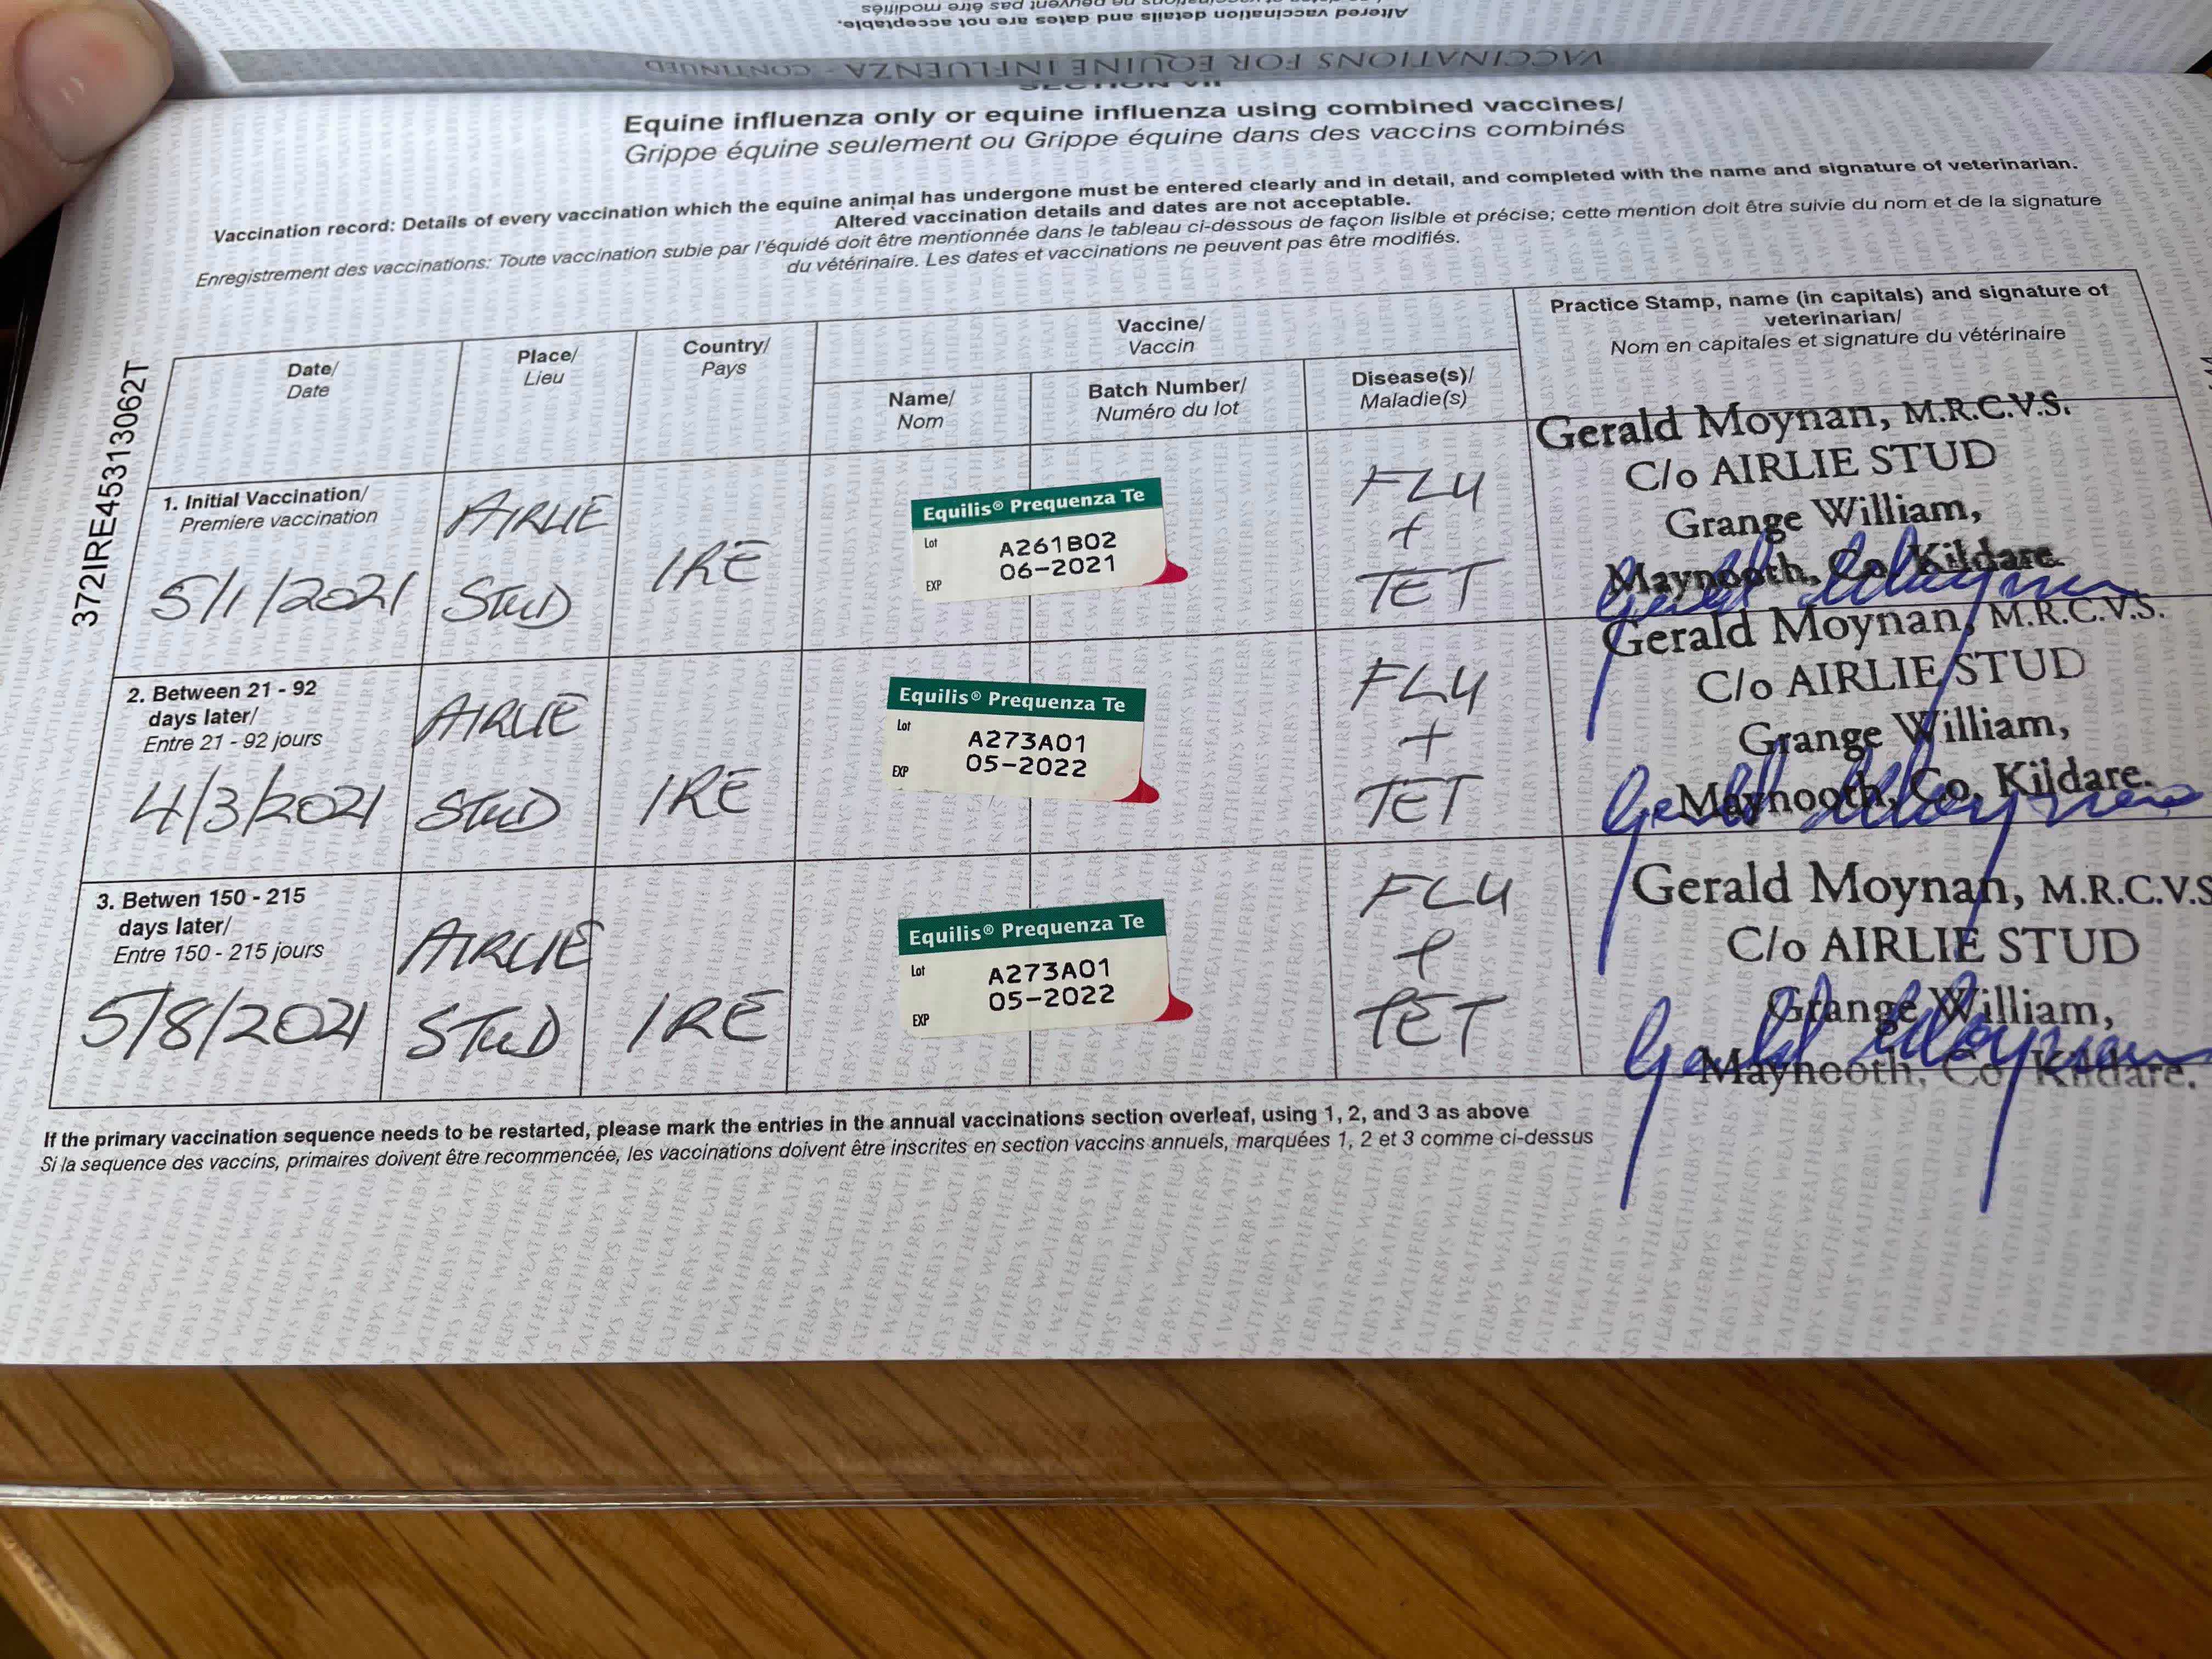 modifiés
Altered vaccination details and dates are not acceptable.
VACCINATIONS FOR EQUINE INFLUENZA - CONTINUED
SECTION VII
Equine influenza only or equine influenza using combined vaccines/
Grippe équine seulement ou Grippe équine dans des vaccins combinés
Vaccination record: Details of every vaccination which the equine animal has undergone must be entered clearly and in detail, and completed with the name and signature of veterinarian.
Altered vaccination details and dates are not acceptable.
Enregistrement des vaccinations: Toute vaccination subie par l'équidé doit être mentionnée dans le tableau ci-dessous de façon lisible et précise; cette mention doit être suivie du nom et de la signature
du vétérinaire. Les dates et vaccinations ne peuvent pas être modifiés.
372IRE45313062T
Date/
Date
Place/
Lieu
Country/
Pays
Vaccine/
Vaccin
Name/
Nom
Batch Number/
Numéro du lot
Disease(s)/
Maladie(s)
Practice Stamp, name (in capitals) and signature of
veterinarian/
Nom en capitales et signature du vétérinaire
1. Initial Vaccination/
Premiere vaccination
5/1/2021
AIRLIE
STUD
IRE
Equilis® Prequenza Te
Lot A261B02
EXP 06-2021
FLU
+
TET
Gerald Moynan, M.R.C.V.S.
C/o AIRLIE STUD
Grange William,
Maynooth, Co. Kildare.
Gerald Moynan
2. Between 21 - 92
days later/
Entre 21 - 92 jours
4/3/2021
AIRLIE
STUD
IRE
Equilis® Prequenza Te
Lot A273A01
EXP 05-2022
FLU
+
TET
Gerald Moynan, M.R.C.V.S.
C/o AIRLIE STUD
Grange William,
Maynooth, Co. Kildare.
Gerald Moynan
3. Betwen 150 - 215
days later/
Entre 150 - 215 jours
5/8/2021
AIRLIE
STUD
IRE
Equilis® Prequenza Te
Lot A273A01
EXP 05-2022
FLU
+
TET
Gerald Moynan, M.R.C.V.S
C/o AIRLIE STUD
Grange William,
Maynooth, Co. Kildare.
Gerald Moynan
If the primary vaccination sequence needs to be restarted, please mark the entries in the annual vaccinations section overleaf, using 1, 2, and 3 as above
Si la sequence des vaccins, primaires doivent être recommencée, les vaccinations doivent être inscrites en section vaccins annuels, marquées 1, 2 et 3 comme ci-dessus